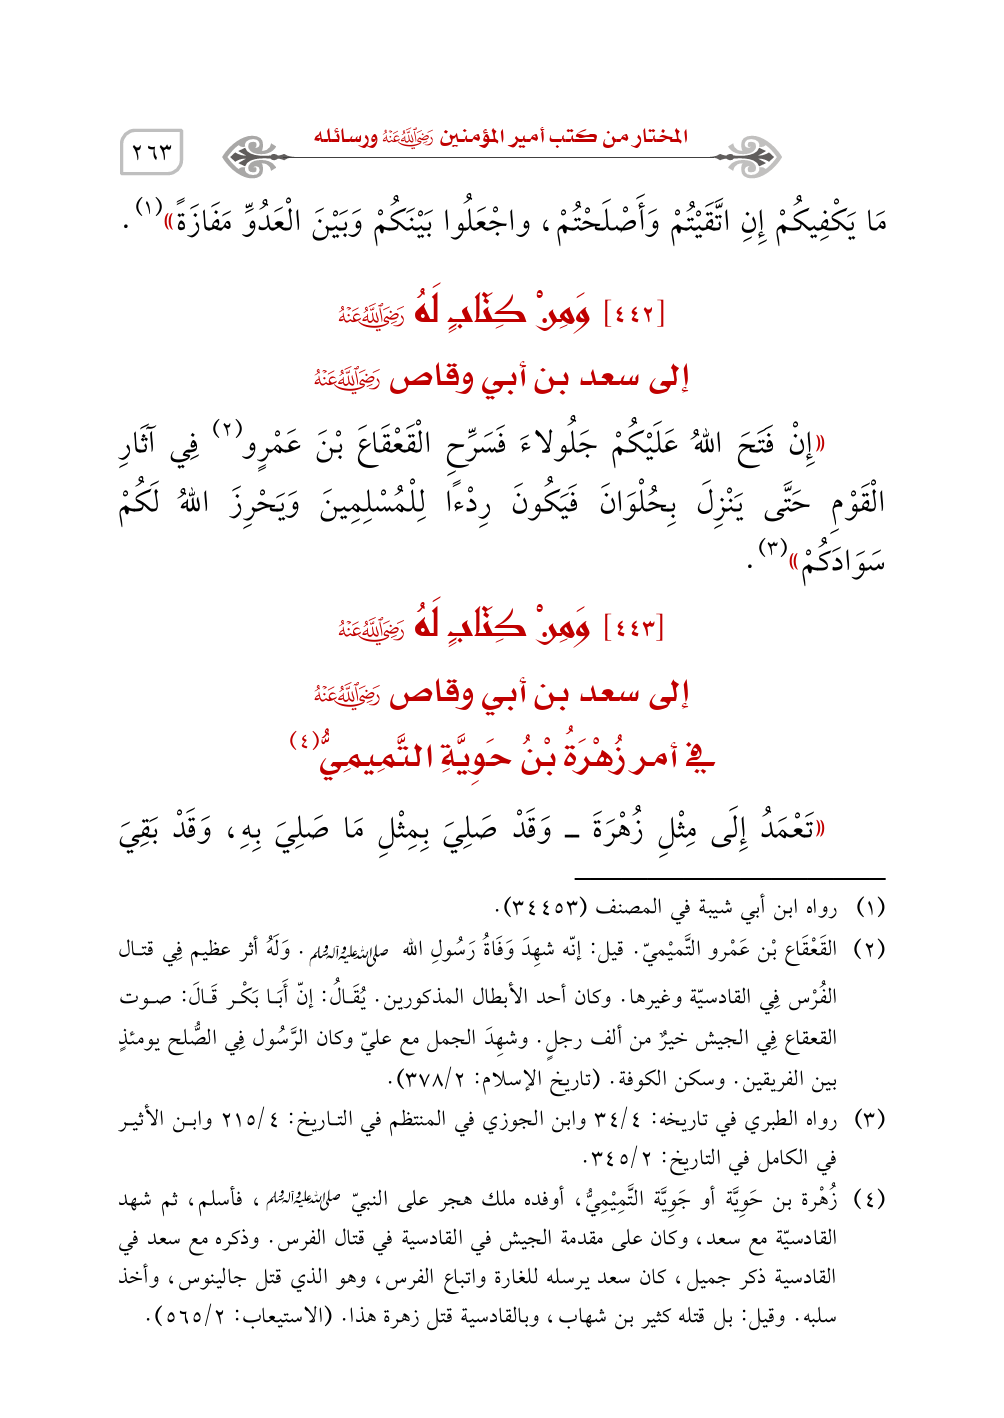 المختار من كتب أمير المؤمنين رَضِيَ اللَّهُ عَنْهُ ورسائله
٢٦٣
مَا يَكْفِيكُمْ إِنِ اتَّقَيْتُمْ وَأَصْلَحْتُمْ، واجْعَلُوا بَيْنَكُمْ وَبَيْنَ الْعَدُوِّ مَفَازَةً»(١).
[٤٤٢] وَمِنْ كِتَابٍ لَهُ رَضِيَ اللَّهُ عَنْهُ
إلى سعد بن أبي وقاص رَضِيَ اللَّهُ عَنْهُ
«إِنْ فَتَحَ اللهُ عَلَيْكُمْ جَلُولاءَ فَسَرِّحِ الْقَعْقَاعَ بْنَ عَمْرٍو(٢) فِي آثَارِ
الْقَوْمِ حَتَّى يَنْزِلَ بِحُلْوَانَ فَيَكُونَ رِدْءًا لِلْمُسْلِمِينَ وَيَحْرِزَ اللهُ لَكُمْ
سَوَادَكُمْ»(٣).
[٤٤٣] وَمِنْ كِتَابٍ لَهُ رَضِيَ اللَّهُ عَنْهُ
إلى سعد بن أبي وقاص رَضِيَ اللَّهُ عَنْهُ
في أمر زُهْرَةُ بْنُ حَوِيَّةِ التَّمِيمِيُّ(٤)
«تَعْمَدُ إِلَى مِثْلِ زُهْرَةَ ـ وَقَدْ صَلِيَ بِمِثْلِ مَا صَلِيَ بِهِ، وَقَدْ بَقِيَ
(١) رواه ابن أبي شيبة في المصنف (٣٤٤٥٣).
(٢) القَعْقَاع بْن عَمْرو التَّميْميّ. قيل: إنّه شهِدَ وَفَاةُ رَسُولِ الله صلى الله عليه وآله وسلم. وَلَهُ أثر عظيم فِي قتـال
الفُرْس فِي القادسيّة وغيرها. وكان أحد الأبطال المذكورين. يُقَـالُ: إنّ أَبَـا بَكْـر قَـالَ: صـوت
القعقاع فِي الجيش خيرٌ من ألف رجلٍ. وشهِدَ الجمل مع عليّ وكان الرَّسُول فِي الصُّلح يومئذٍ
بين الفريقين. وسكن الكوفة. (تاريخ الإسلام: ٣٧٨/٢).
(٣) رواه الطبري في تاريخه: ٣٤/٤ وابن الجوزي في المنتظم في التـاريخ: ٢١٥/٤ وابـن الأثيـر
في الكامل في التاريخ: ٣٤٥/٢.
(٤) زُهْرة بن حَوِيَّة أو جَوِيَّة التَّمِيْمِيُّ، أوفده ملك هجر على النبيّ صلى الله عليه وآله وسلم، فأسلم، ثم شهد
القادسيّة مع سعد، وكان على مقدمة الجيش في القادسية في قتال الفرس. وذكره مع سعد في
القادسية ذكر جميل، كان سعد يرسله للغارة واتباع الفرس، وهو الذي قتل جالينوس، وأخذ
سلبه. وقيل: بل قتله كثير بن شهاب، وبالقادسية قتل زهرة هذا. (الاستيعاب: ٥٦٥/٢).